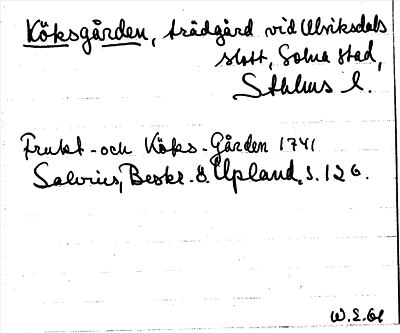 Köksgården, trädgård vid Ulriksdals
slott, Solna stad,
Sthlms l.
Frukt- och Köks-Gården 1741
Salvius, Beskr. ö. Upland, s. 126.
W.E. 61